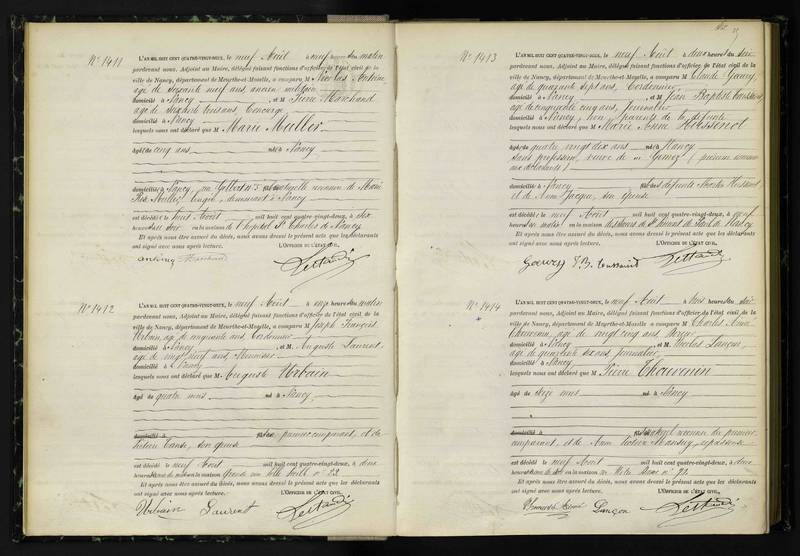 N° 1411
L'AN MIL HUIT CENT QUATRE-VINGT-DEUX, le neuf Août à neuf heures du matin
pardevant nous, Adjoint au Maire, délégué faisant fonctions d'officier de l'état civil de la
ville de Nancy, département de Meurthe-et-Moselle, a comparu M Nicolas Antoine
âgé de soixante neuf ans, ancien militaire
domicilié à Nancy, et M Pierre Marchand
âgé de soixante trois ans, Concierge
domicilié à Nancy
lesquels nous ont déclaré que M Marie Muller
âgé de cinq ans né à Nancy
domicilié à Nancy, rue Gilbert n° 5 fille naturelle reconnue de Marie
Rose Muller, lingère, demeurant à Nancy
est décédé le huit Août mil huit cent quatre-vingt-deux, à six
heures du soir en la maison de l'hôpital St Charles de Nancy
Et après nous être assuré du décès, nous avons dressé le présent acte que les déclarants
ont signé avec nous après lecture. L'OFFICIER DE L'ÉTAT CIVIL,
Antoine Marchand
N° 1412
L'AN MIL HUIT CENT QUATRE-VINGT-DEUX, le neuf Août à onze heures du matin
pardevant nous, Adjoint au Maire, délégué faisant fonctions d'officier de l'état civil de la
ville de Nancy, département de Meurthe-et-Moselle, a comparu M Joseph François
Urbain, âgé de cinquante ans, Cordonnier
domicilié à Nancy, et M. Auguste Laurent,
âgé de vingt neuf ans, Menuisier
domicilié à Nancy
lesquels nous ont déclaré que M Auguste Urbain
âgé de quatre mois né à Nancy
domicilié à fils du premier comparant, et de
son épouse
est décédé le neuf Août mil huit cent quatre-vingt-deux, à deux
heures du matin en la maison Grande rue Ville Vieille n° 22
Et après nous être assuré du décès, nous avons dressé le présent acte que les déclarants
ont signé avec nous après lecture. L'OFFICIER DE L'ÉTAT CIVIL,
Urbain Laurent
N° 1413
L'AN MIL HUIT CENT QUATRE-VINGT-DEUX, le neuf Août à deux heures du soir
pardevant nous, Adjoint au Maire, délégué faisant fonctions d'officier de l'état civil de la
ville de Nancy, département de Meurthe-et-Moselle, a comparu M Claude Gouvy
âgé de quarante sept ans, Cordonnier
domicilié à Nancy, et M Jean Baptiste Toussaint,
âgé de cinquante cinq ans, Journalier
domicilié à Nancy, non parents de la défunte
lesquels nous ont déclaré que M Marie Anne
âgé de quatre vingt dix ans né à Nancy
sans profession, veuve de
domicilié à Nancy fille des défunts
et de Anne Jacquo, son épouse
est décédé le neuf Août mil huit cent quatre-vingt-deux, à neuf
heures du matin en la maison des sœurs de St Vincent de Paul de Nancy
Et après nous être assuré du décès, nous avons dressé le présent acte que les déclarants
ont signé avec nous après lecture. L'OFFICIER DE L'ÉTAT CIVIL,
Gouvy J.B. Toussaint
N° 1414
L'AN MIL HUIT CENT QUATRE-VINGT-DEUX, le neuf Août à trois heures du soir
pardevant nous, Adjoint au Maire, délégué faisant fonctions d'officier de l'état civil de la
ville de Nancy, département de Meurthe-et-Moselle, a comparu M Charles
Thouvenin, âgé de vingt cinq ans
domicilié à Nancy, et M Nicolas
âgé de quarante six ans, journalier
domicilié à Nancy
lesquels nous ont déclaré que M Pierre Thouvenin
âgé de seize mois né à Nancy
domicilié à fils naturel reconnu du premier
comparant, et de Anne
est décédé le neuf Août mil huit cent quatre-vingt-deux, à deux
heures en la maison n° 22
Et après nous être assuré du décès, nous avons dressé le présent acte que les déclarants
ont signé avec nous après lecture. L'OFFICIER DE L'ÉTAT CIVIL,